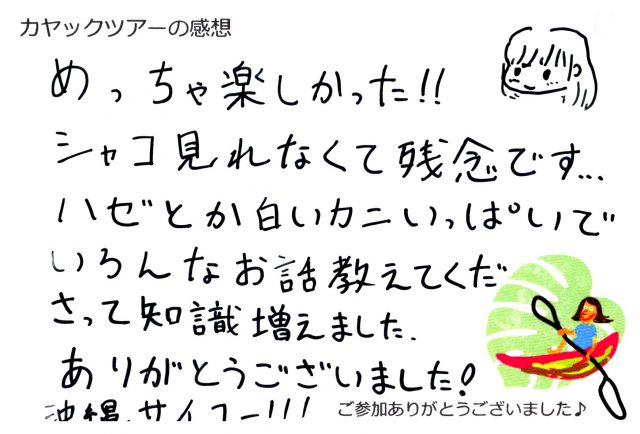 カヤックツアーの感想
めっちゃ楽しかった!!
シャコ見れなくて残念です...
ハゼとか白いカニいっぱいで
いろんなお話教えてくだ
さって知識増えました.
ありがとうございました!
沖縄サイコー!!!
ご参加ありがとうございました♪